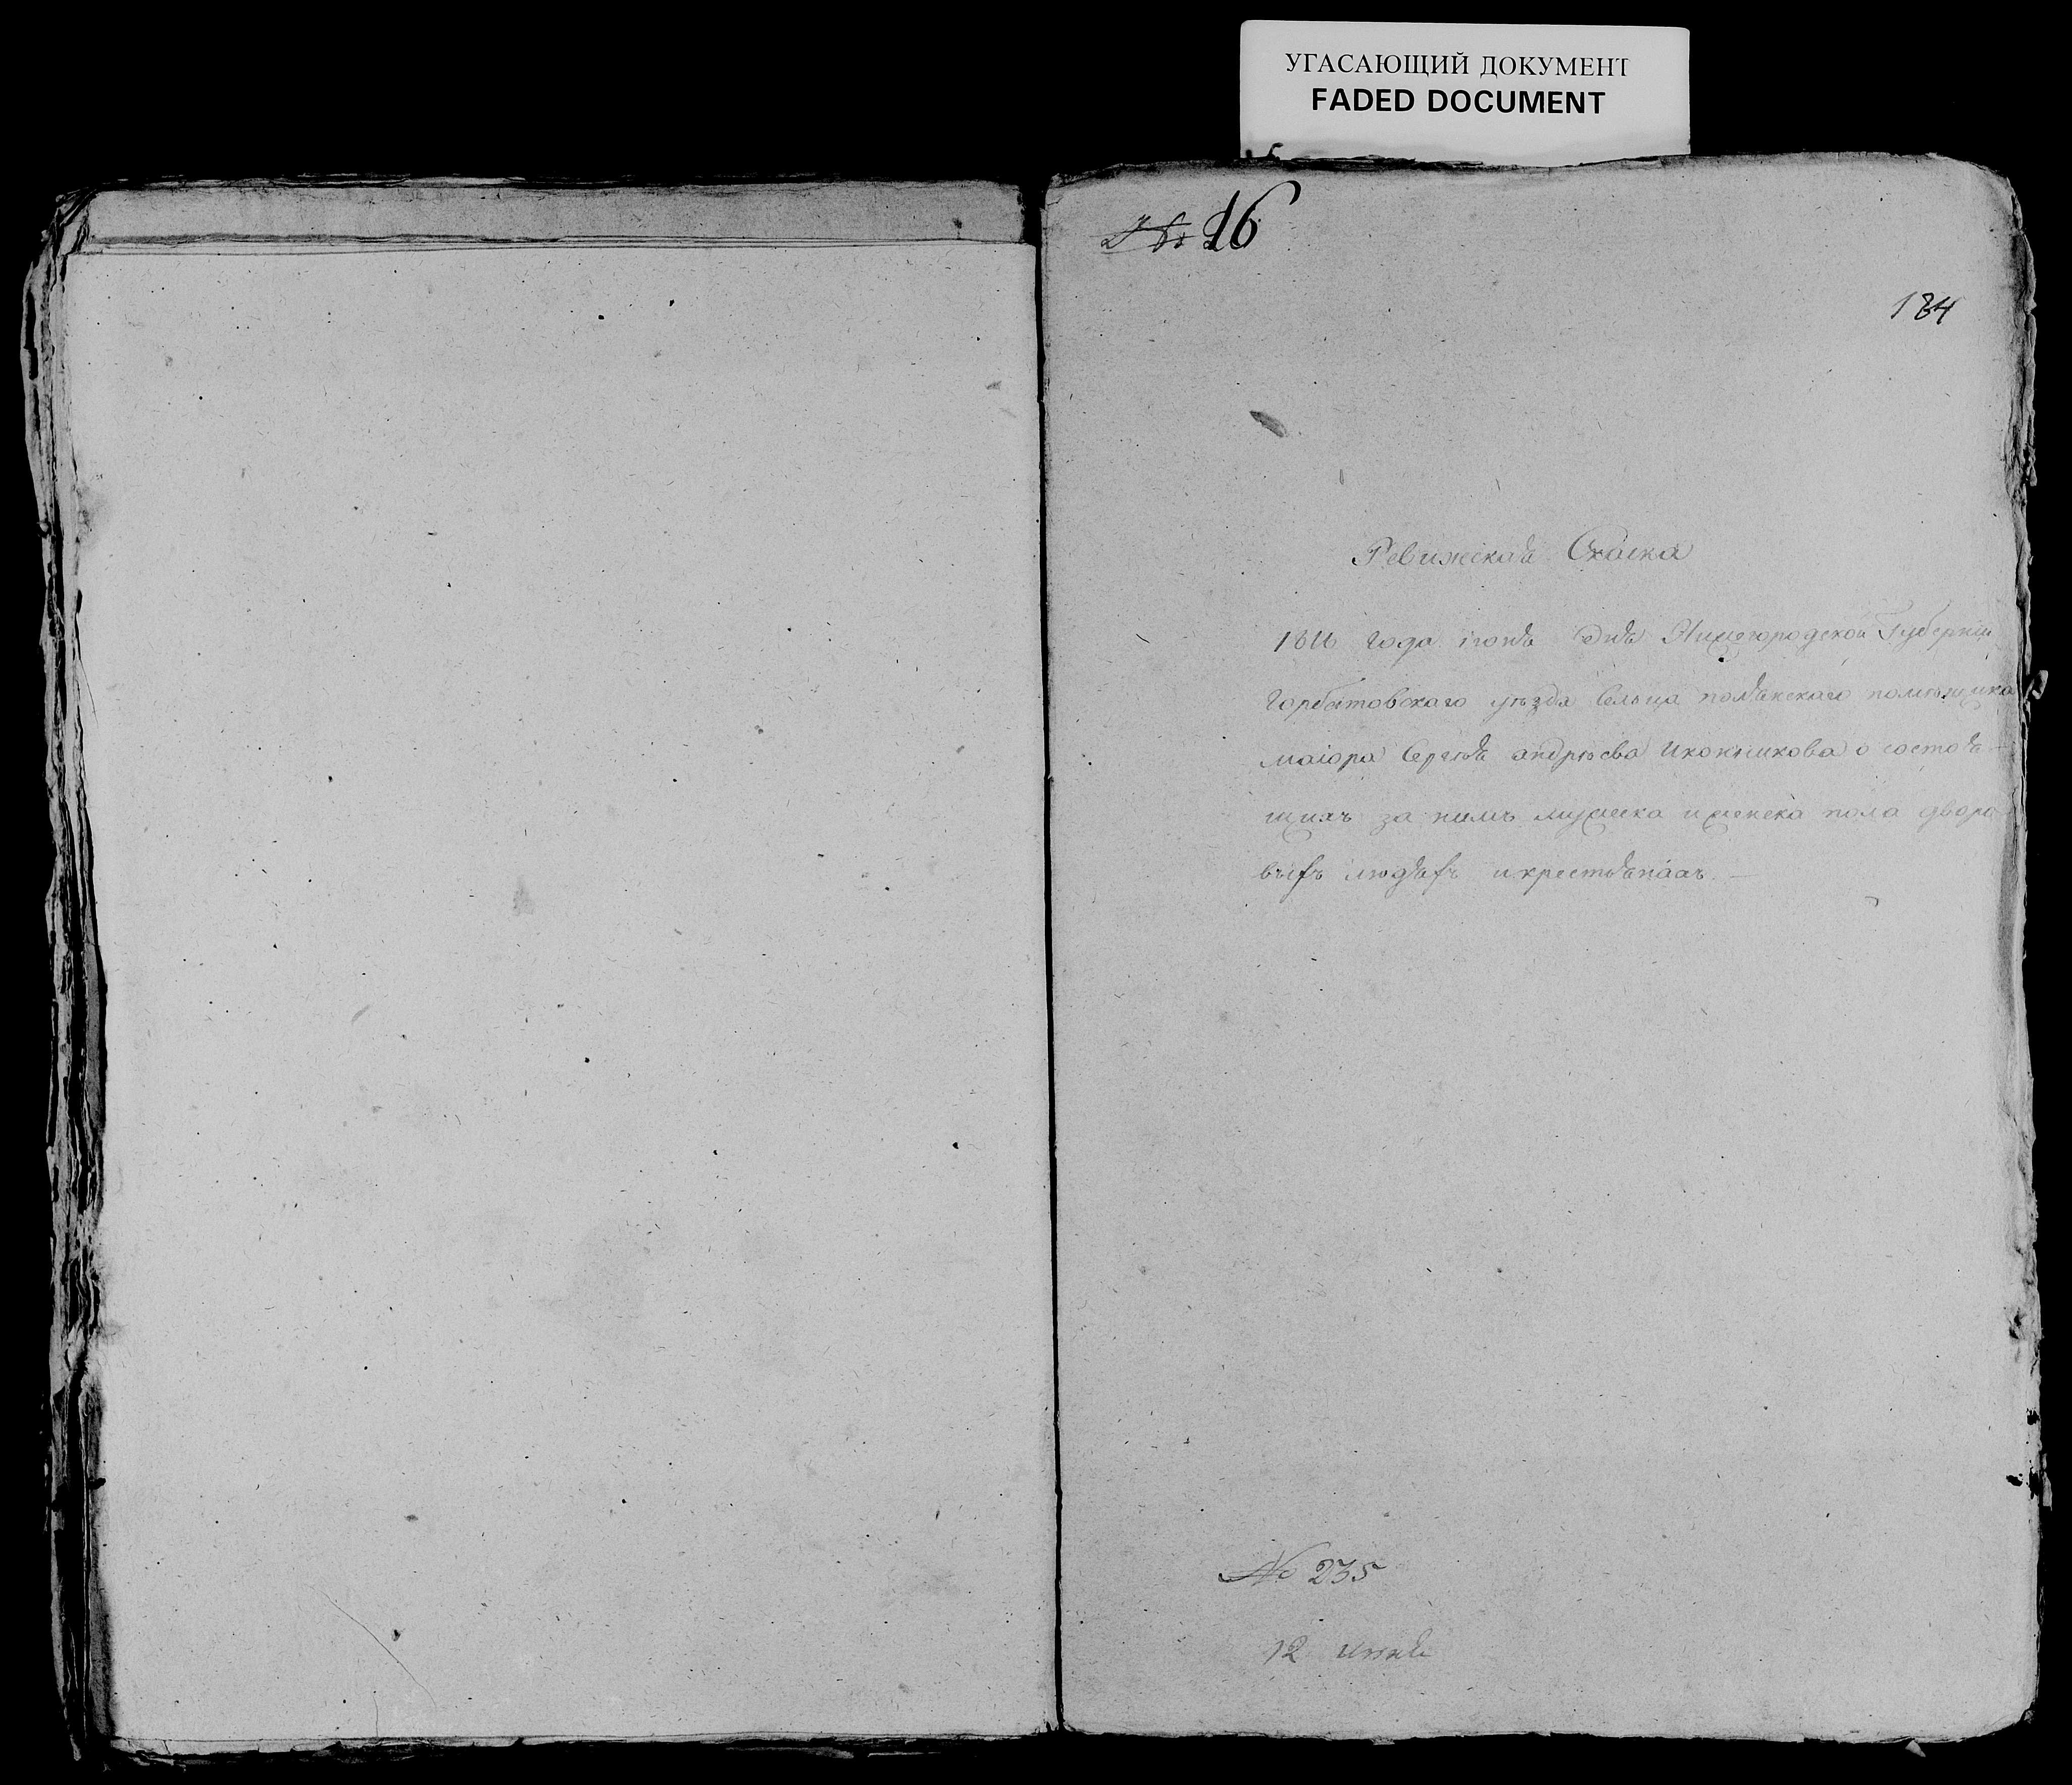 УГАСАЮЩИЙ ДОКУМЕНТ
FADED DOCUMENT
№ 16
184
Ревижская Скаска
1816 года июня дня Нижегородской Губернии
Горбатовскаго уѣзда сельца полянскаго помѣщика
маіора Сергѣя андрѣева Иконникова о состоя-
щихъ за нимъ мужеска и женска пола дворо
выхъ людяхъ и крестьянахъ. —
№ 235
12 июня